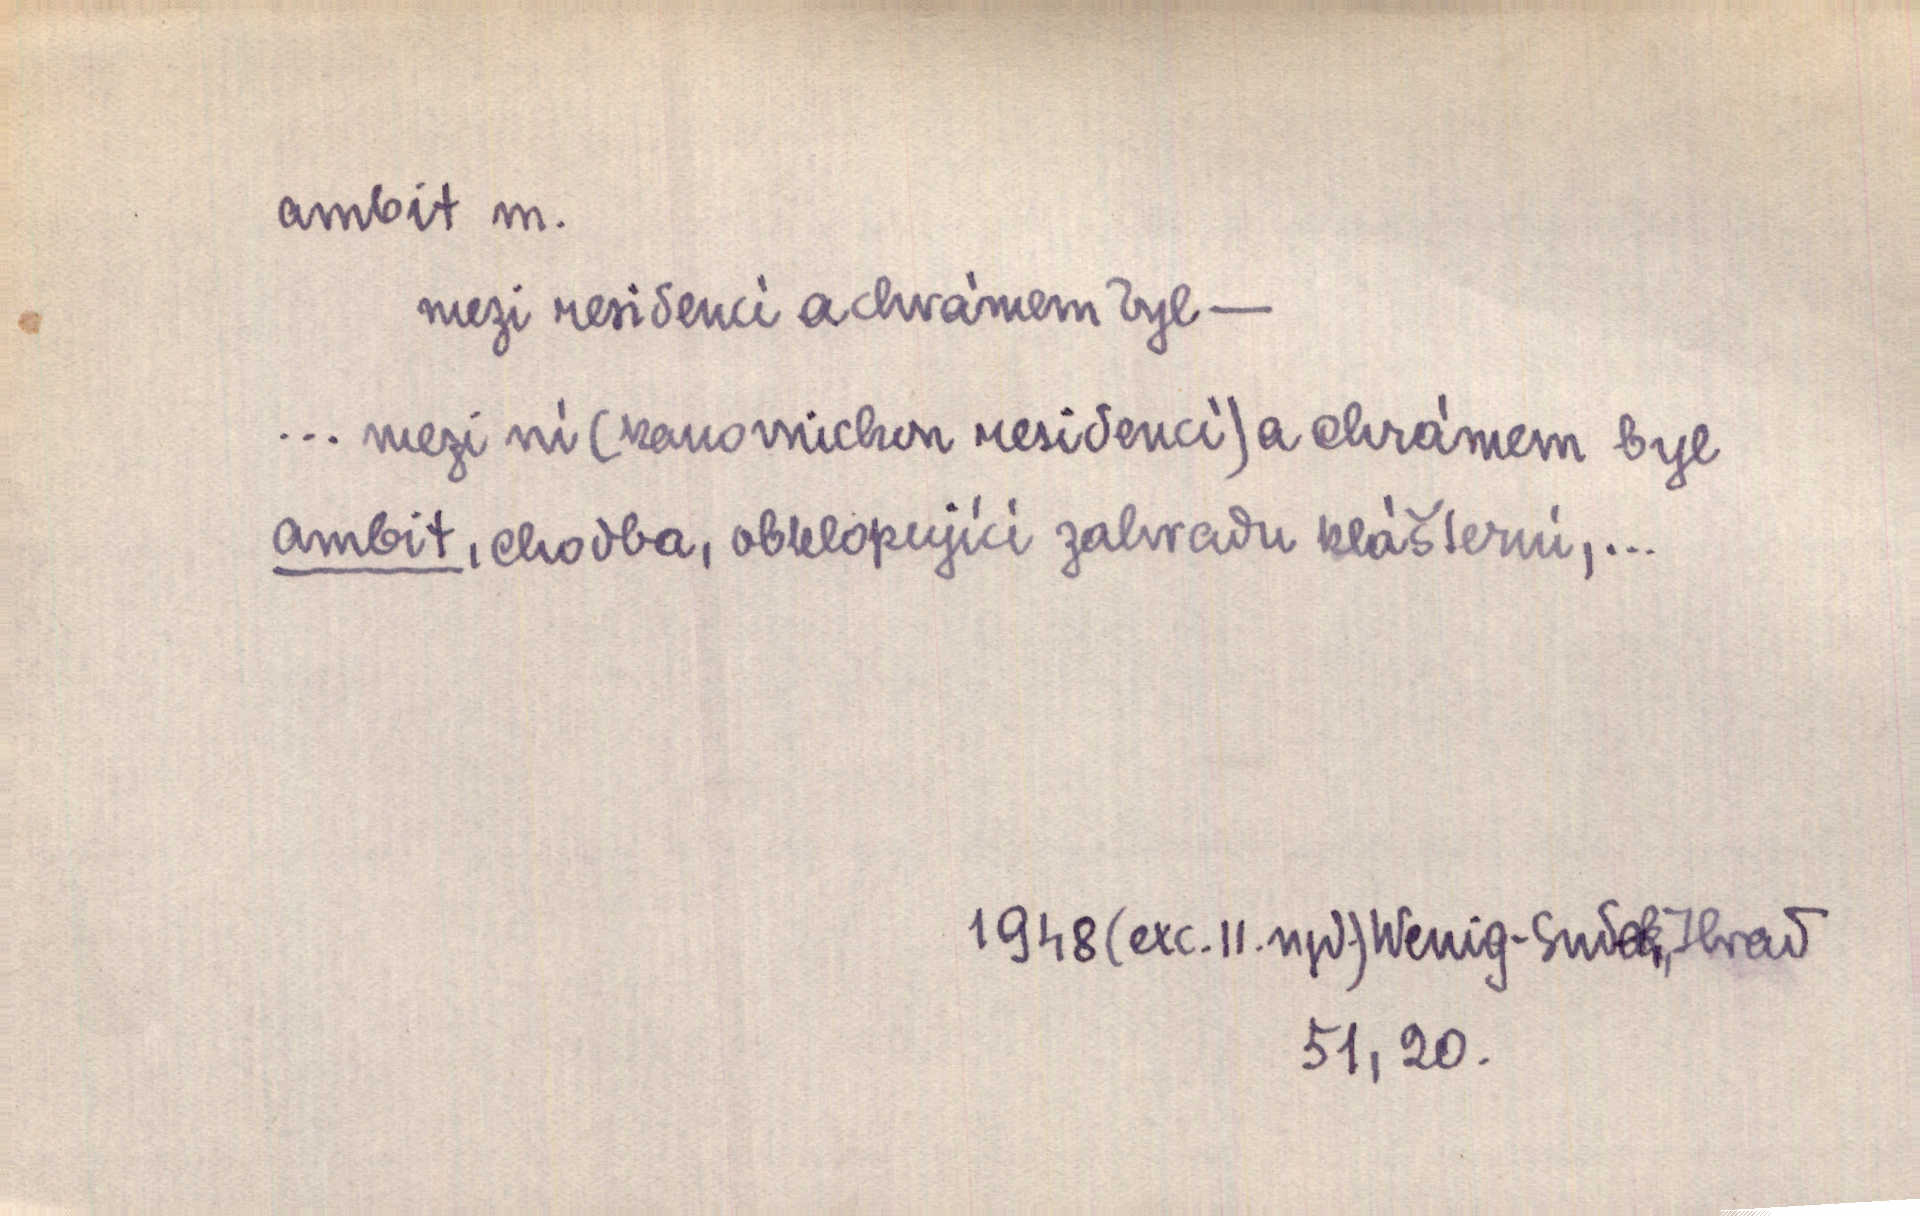 ambit m.
mezi residencí a chrámem byl —
... mezi ní (kanovnickou residencí) a chrámem byl
ambit, chodba, obklopující zahradu klášterní, ...
1948 (exc. 11. vyd.) Wenig-Sudek, Hrad
51, 20.